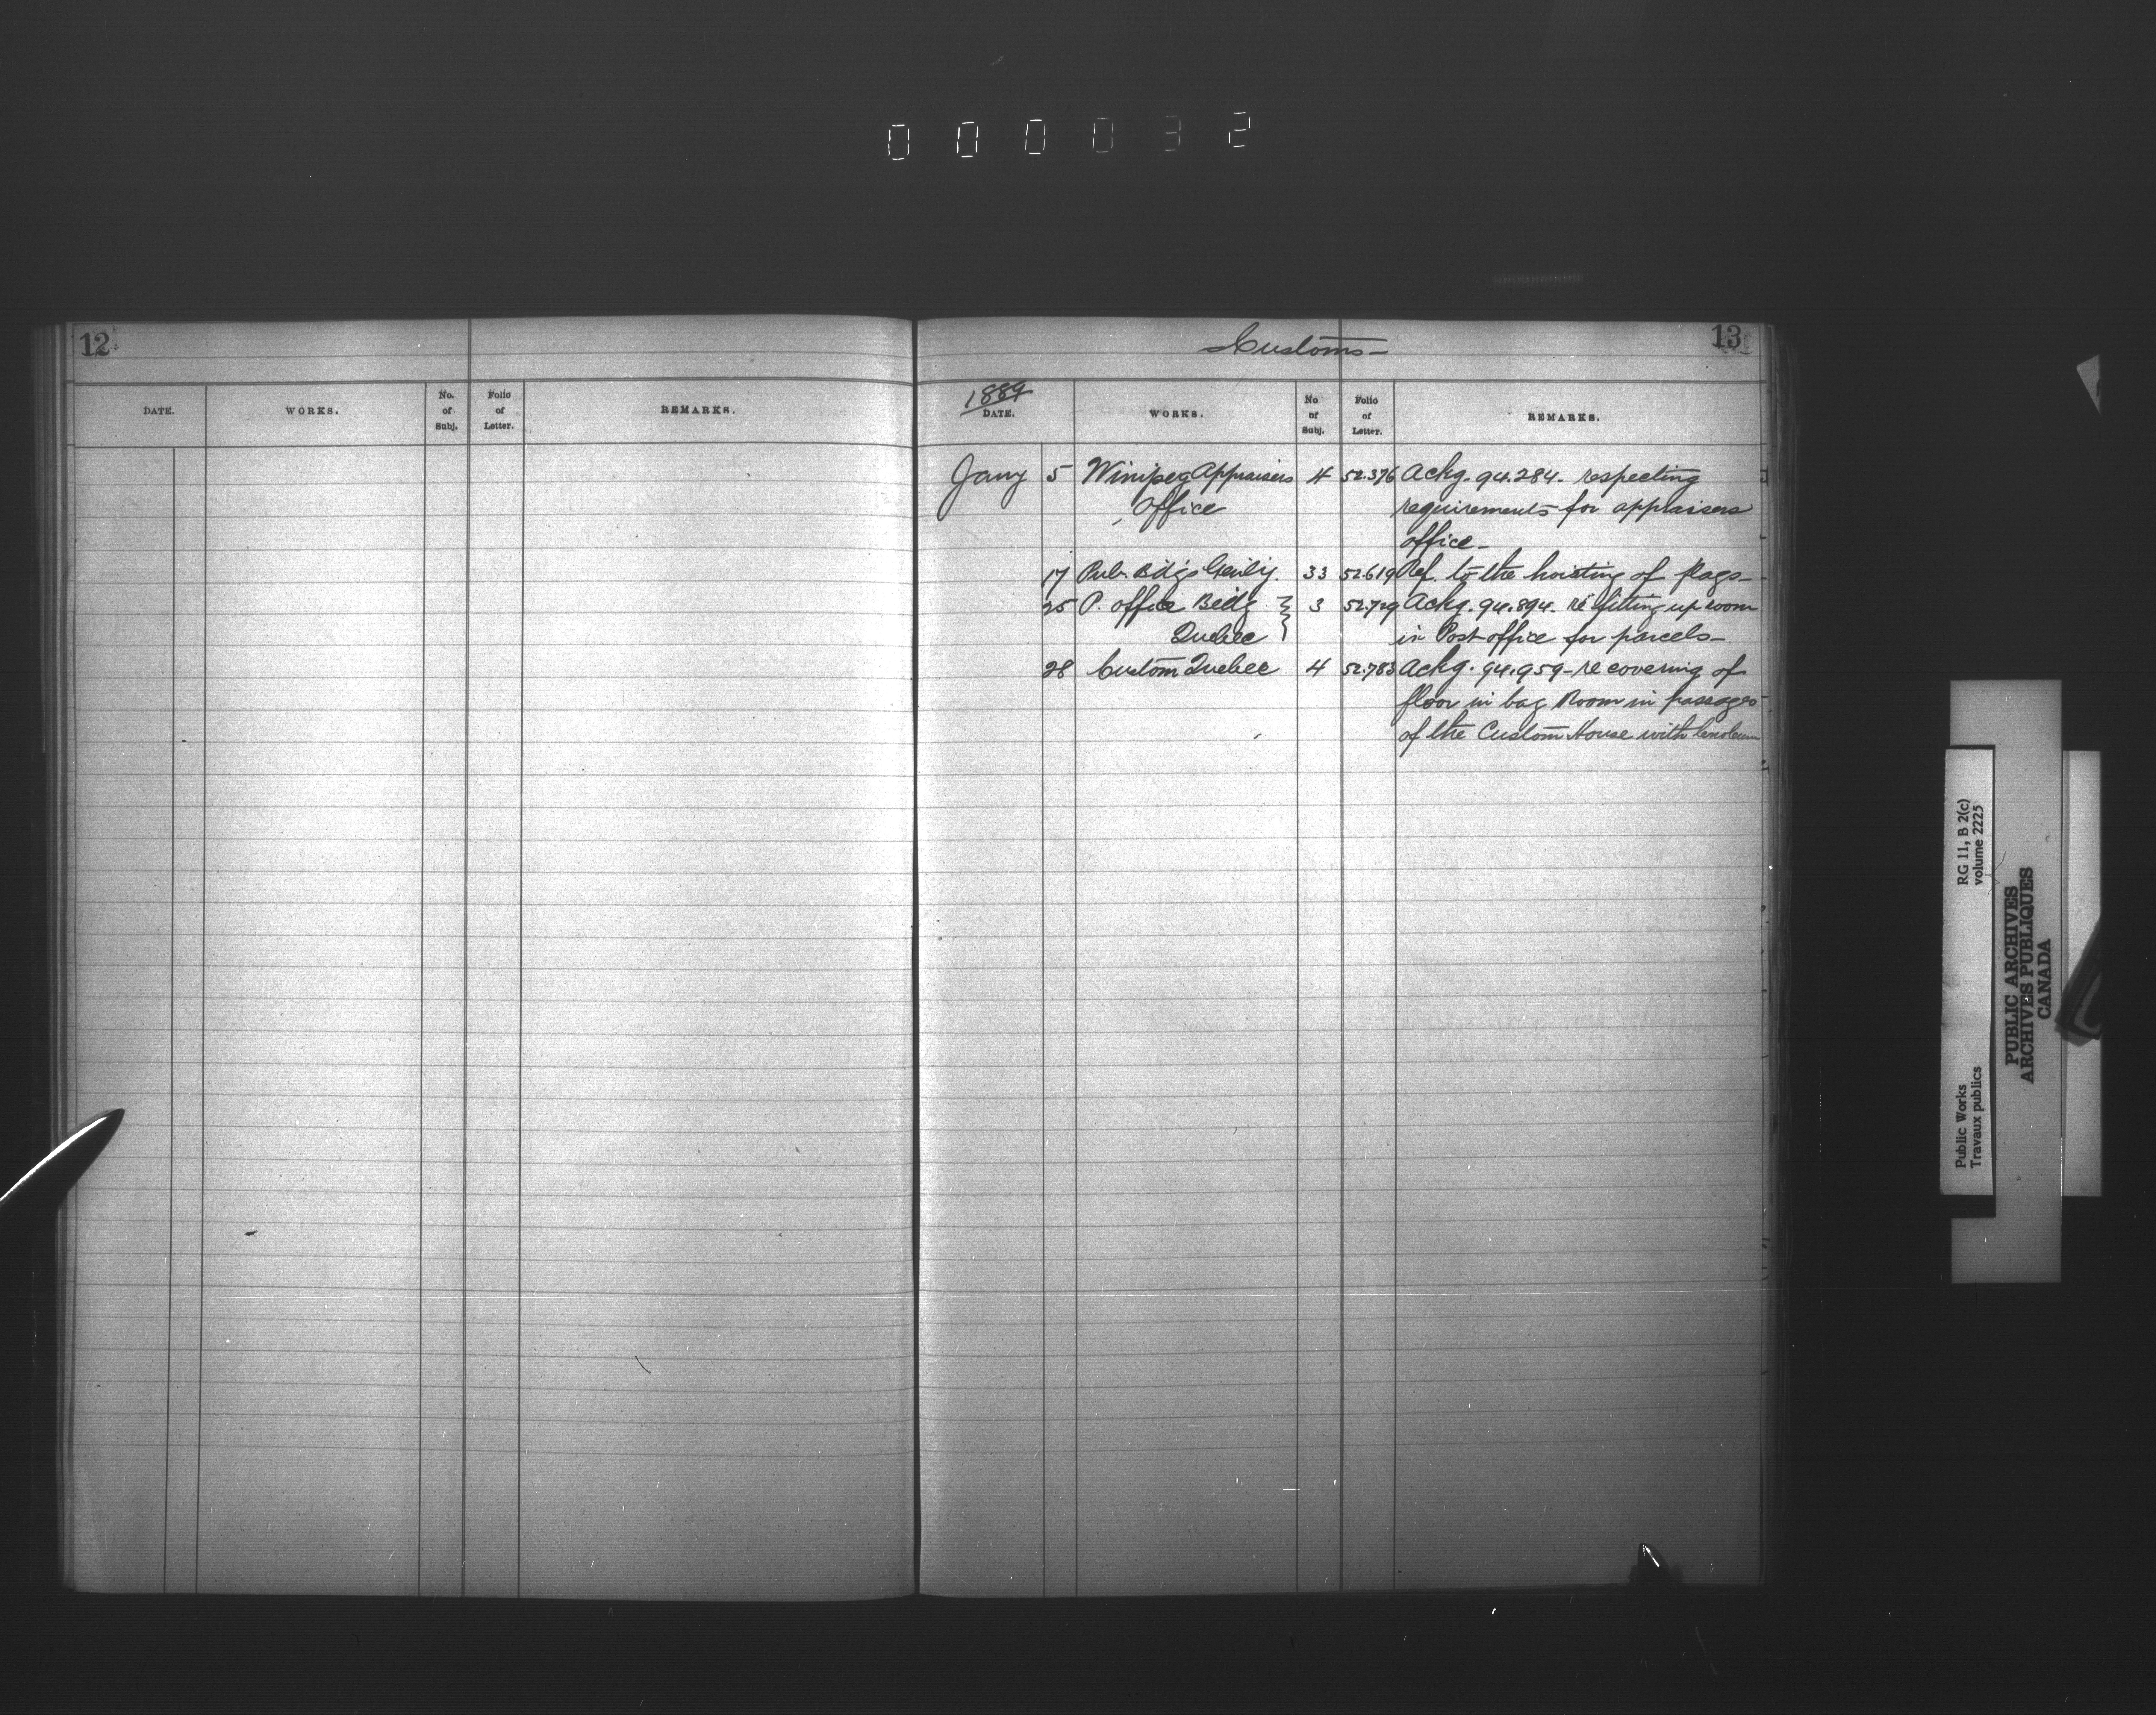 000032
12
DATE. WORKS. No. of Subj. Folio of Letter. REMARKS.
Customs- 13
1889
DATE. WORKS. No of Subj. Folio of Letter. REMARKS.
Jany 5 Winipeg Appraisers 4 52.376 Ackg. 94.284. respecting
Office requirements for appraisers
office-
17 Pub. Bdgs Genly. 33 52.619 Ref. to the hoisting of flags-
25 P. office Bedg 3 52.729 Ackg. 94.894. re fitting up room
Quebec in Post office for parcels-
28 Custom Quebec 4 52.783 Ackg. 94.959- re covering of
floor in bag Room in passages
of the Custom House with linoleum
Public Works RG 11, B 2(c)
Travaux publics volume 2225
PUBLIC ARCHIVES
ARCHIVES PUBLIQUES
CANADA